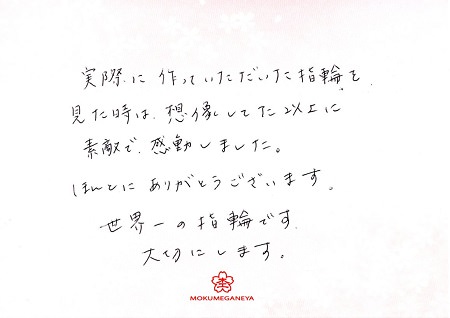 実際に作っていただいた指輪を
見た時は、想像してた以上に
素敵で、感動しました。
ほんとにありがとうございます。
世界一の指輪です。
大切にします。
MOKUMEGANEYA